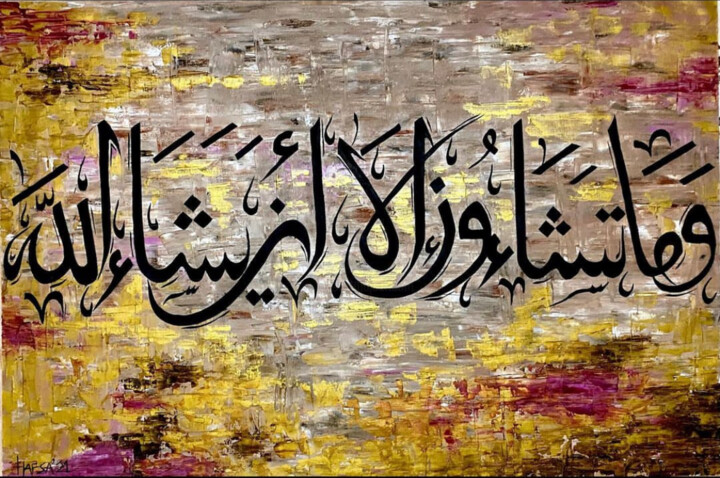 وَمَا تَشَاءُونَ إِلَّا أَن يَشَاءَ اللَّهُ
HAFSA '21